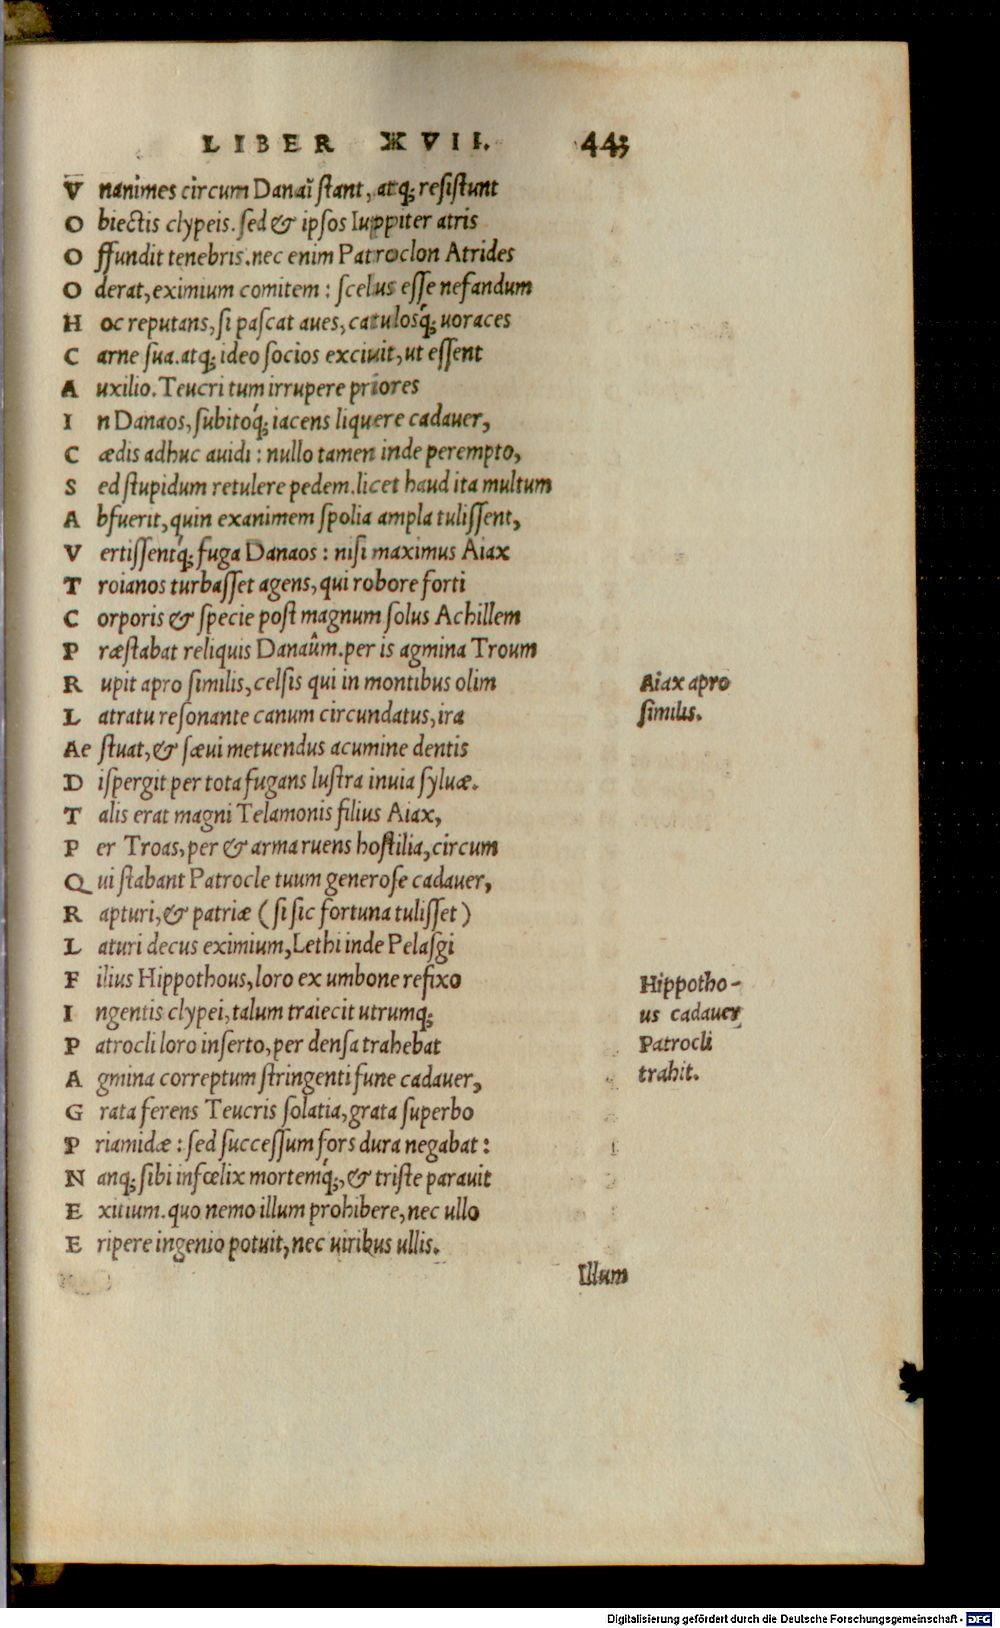 LIBER XVII. 443
V nanimes circum Danaī ſtant, atq; reſiſtunt
O biectis clypeis. ſed & ipſos Iuppiter atris
O ffundit tenebris. nec enim Patroclon Atrides
O derat, eximium comitem : ſcelus eſſe nefandum
H oc reputans, ſi paſcat aues, catulosq́; uoraces
C arne ſua. atq; ideo ſocios exciuit, ut eſſent
A uxilio. Teucri tum irrupere priores
I n Danaos, ſubitoq́; iacens liquere cadauer,
C ædis adhuc auidi : nullo tamen inde perempto,
S ed ſtupidum retulere pedem. licet haud ita multum
A bfuerit, quin exanimem ſpolia ampla tuliſſent,
V ertiſſentq́; fuga Danaos : niſi maximus Aiax
T roianos turbaſſet agens, qui robore forti
C orporis & ſpecie poſt magnum ſolus Achillem
P ræſtabat reliquis Danaûm. per is agmina Troum
R upit apro ſimilis, celſis qui in montibus olim
L atratu reſonante canum circundatus, ira
Ae ſtuat, & ſæui metuendus acumine dentis
D iſpergit per tota fugans luſtra inuia ſyluæ.
T alis erat magni Telamonis filius Aiax,
P er Troas, per & arma ruens hoſtilia, circum
Q ui ſtabant Patrocle tuum generoſe cadauer,
R apturi, & patriæ ( ſi ſic fortuna tuliſſet )
L aturi decus eximium, Lethi inde Pelaſgi
F ilius Hippothous, loro ex umbone refixo
I ngentis clypei, talum traiecit utrumq;
P atrocli loro inſerto, per denſa trahebat
A gmina correptum ſtringenti fune cadauer,
G rata ferens Teucris ſolatia, grata ſuperbo
P riamidæ : ſed ſucceſſum fors dura negabat :
N anq; ſibi infœlix mortemq́;, & triſte parauit
E xitium. quo nemo illum prohibere, nec ullo
E ripere ingenio potuit, nec uiribus ullis.
Illum
Aiax apro
ſimilis.
Hippotho-
us cadauer
Patrocli
trahit.
Digitalisierung gefördert durch die Deutsche Forschungsgemeinschaft - DFG